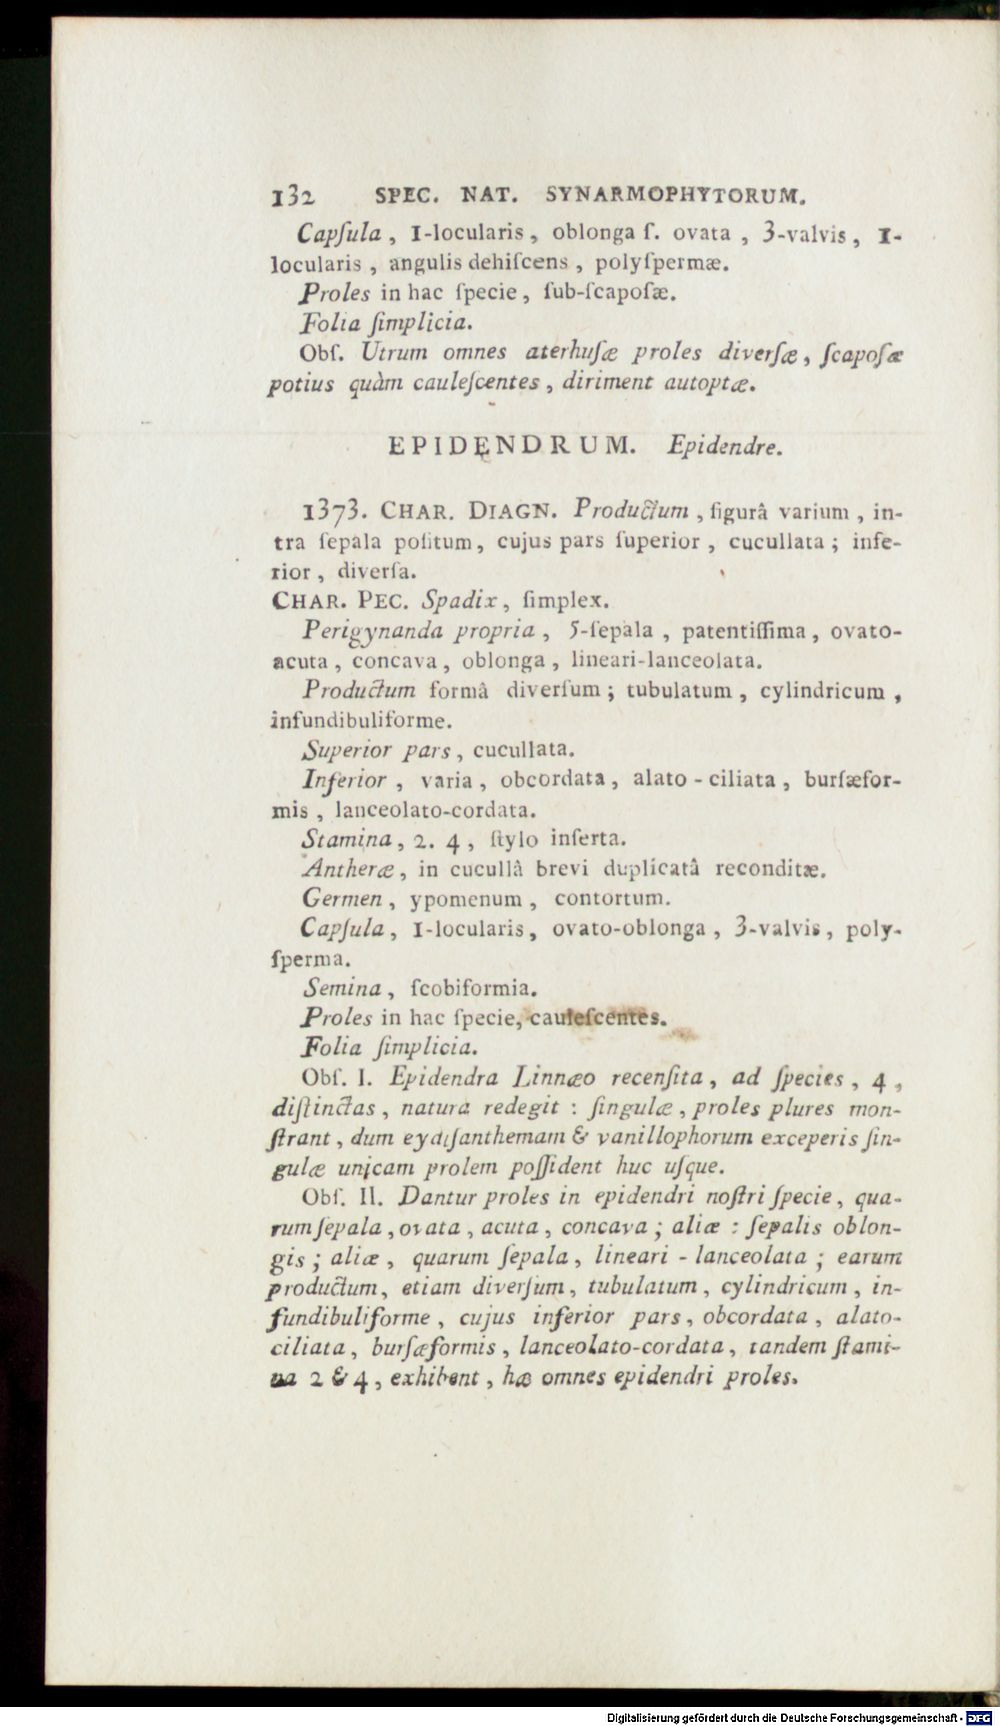 132 SPEC. NAT. SYNARMOPHYTORUM.
Capſula, 1-locularis, oblonga ſ. ovata, 3-valvis, 1-
locularis, angulis dehiſcens, polyſpermæ.
Proles in hac ſpecie, ſub-ſcapoſæ.
Folia ſimplicia.
Obſ. Utrum omnes aterhuſæ proles diverſæ, ſcapoſæ
potius quàm cauleſcentes, diriment autoptæ.
EPIDENDRUM. Epidendre.
1373. CHAR. DIAGN. Productum, figurâ varium, in-
tra ſepala poſitum, cujus pars ſuperior, cucullata; infe-
rior, diverſa.
CHAR. PEC. Spadix, ſimplex.
Perigynanda propria, 5-ſepala, patentiſſima, ovato-
acuta, concava, oblonga, lineari-lanceolata.
Productum formâ diverſum; tubulatum, cylindricum,
infundibuliforme.
Superior pars, cucullata.
Inferior, varia, obcordata, alato-ciliata, burſæfor-
mis, lanceolato-cordata.
Stamina, 2. 4, ſtylo inſerta.
Antheræ, in cucullâ brevi duplicatâ reconditæ.
Germen, ypomenum, contortum.
Capſula, 1-locularis, ovato-oblonga, 3-valvis, poly-
ſperma.
Semina, ſcobiformia.
Proles in hac ſpecie, cauleſcentes.
Folia ſimplicia.
Obſ. I. Epidendra Linnæo recenſita, ad ſpecies, 4,
diſtinctas, natura redegit: ſingulæ, proles plures mon-
ſtrant, dum eydiſanthemam & vanillophorum exceperis ſin-
gulæ unicam prolem poſſident huc uſque.
Obſ. II. Dantur proles in epidendri noſtri ſpecie, qua-
rum ſepala, ovata, acuta, concava; aliæ: ſepalis oblon-
gis; aliæ, quarum ſepala, lineari-lanceolata; earum
productum, etiam diverſum, tubulatum, cylindricum, in-
fundibuliforme, cujus inferior pars, obcordata, alato-
ciliata, burſæformis, lanceolato-cordata, tandem ſtami-
na 2 & 4, exhibent, hæ omnes epidendri proles.
Digitalisierung gefördert durch die Deutsche Forschungsgemeinschaft - DFG